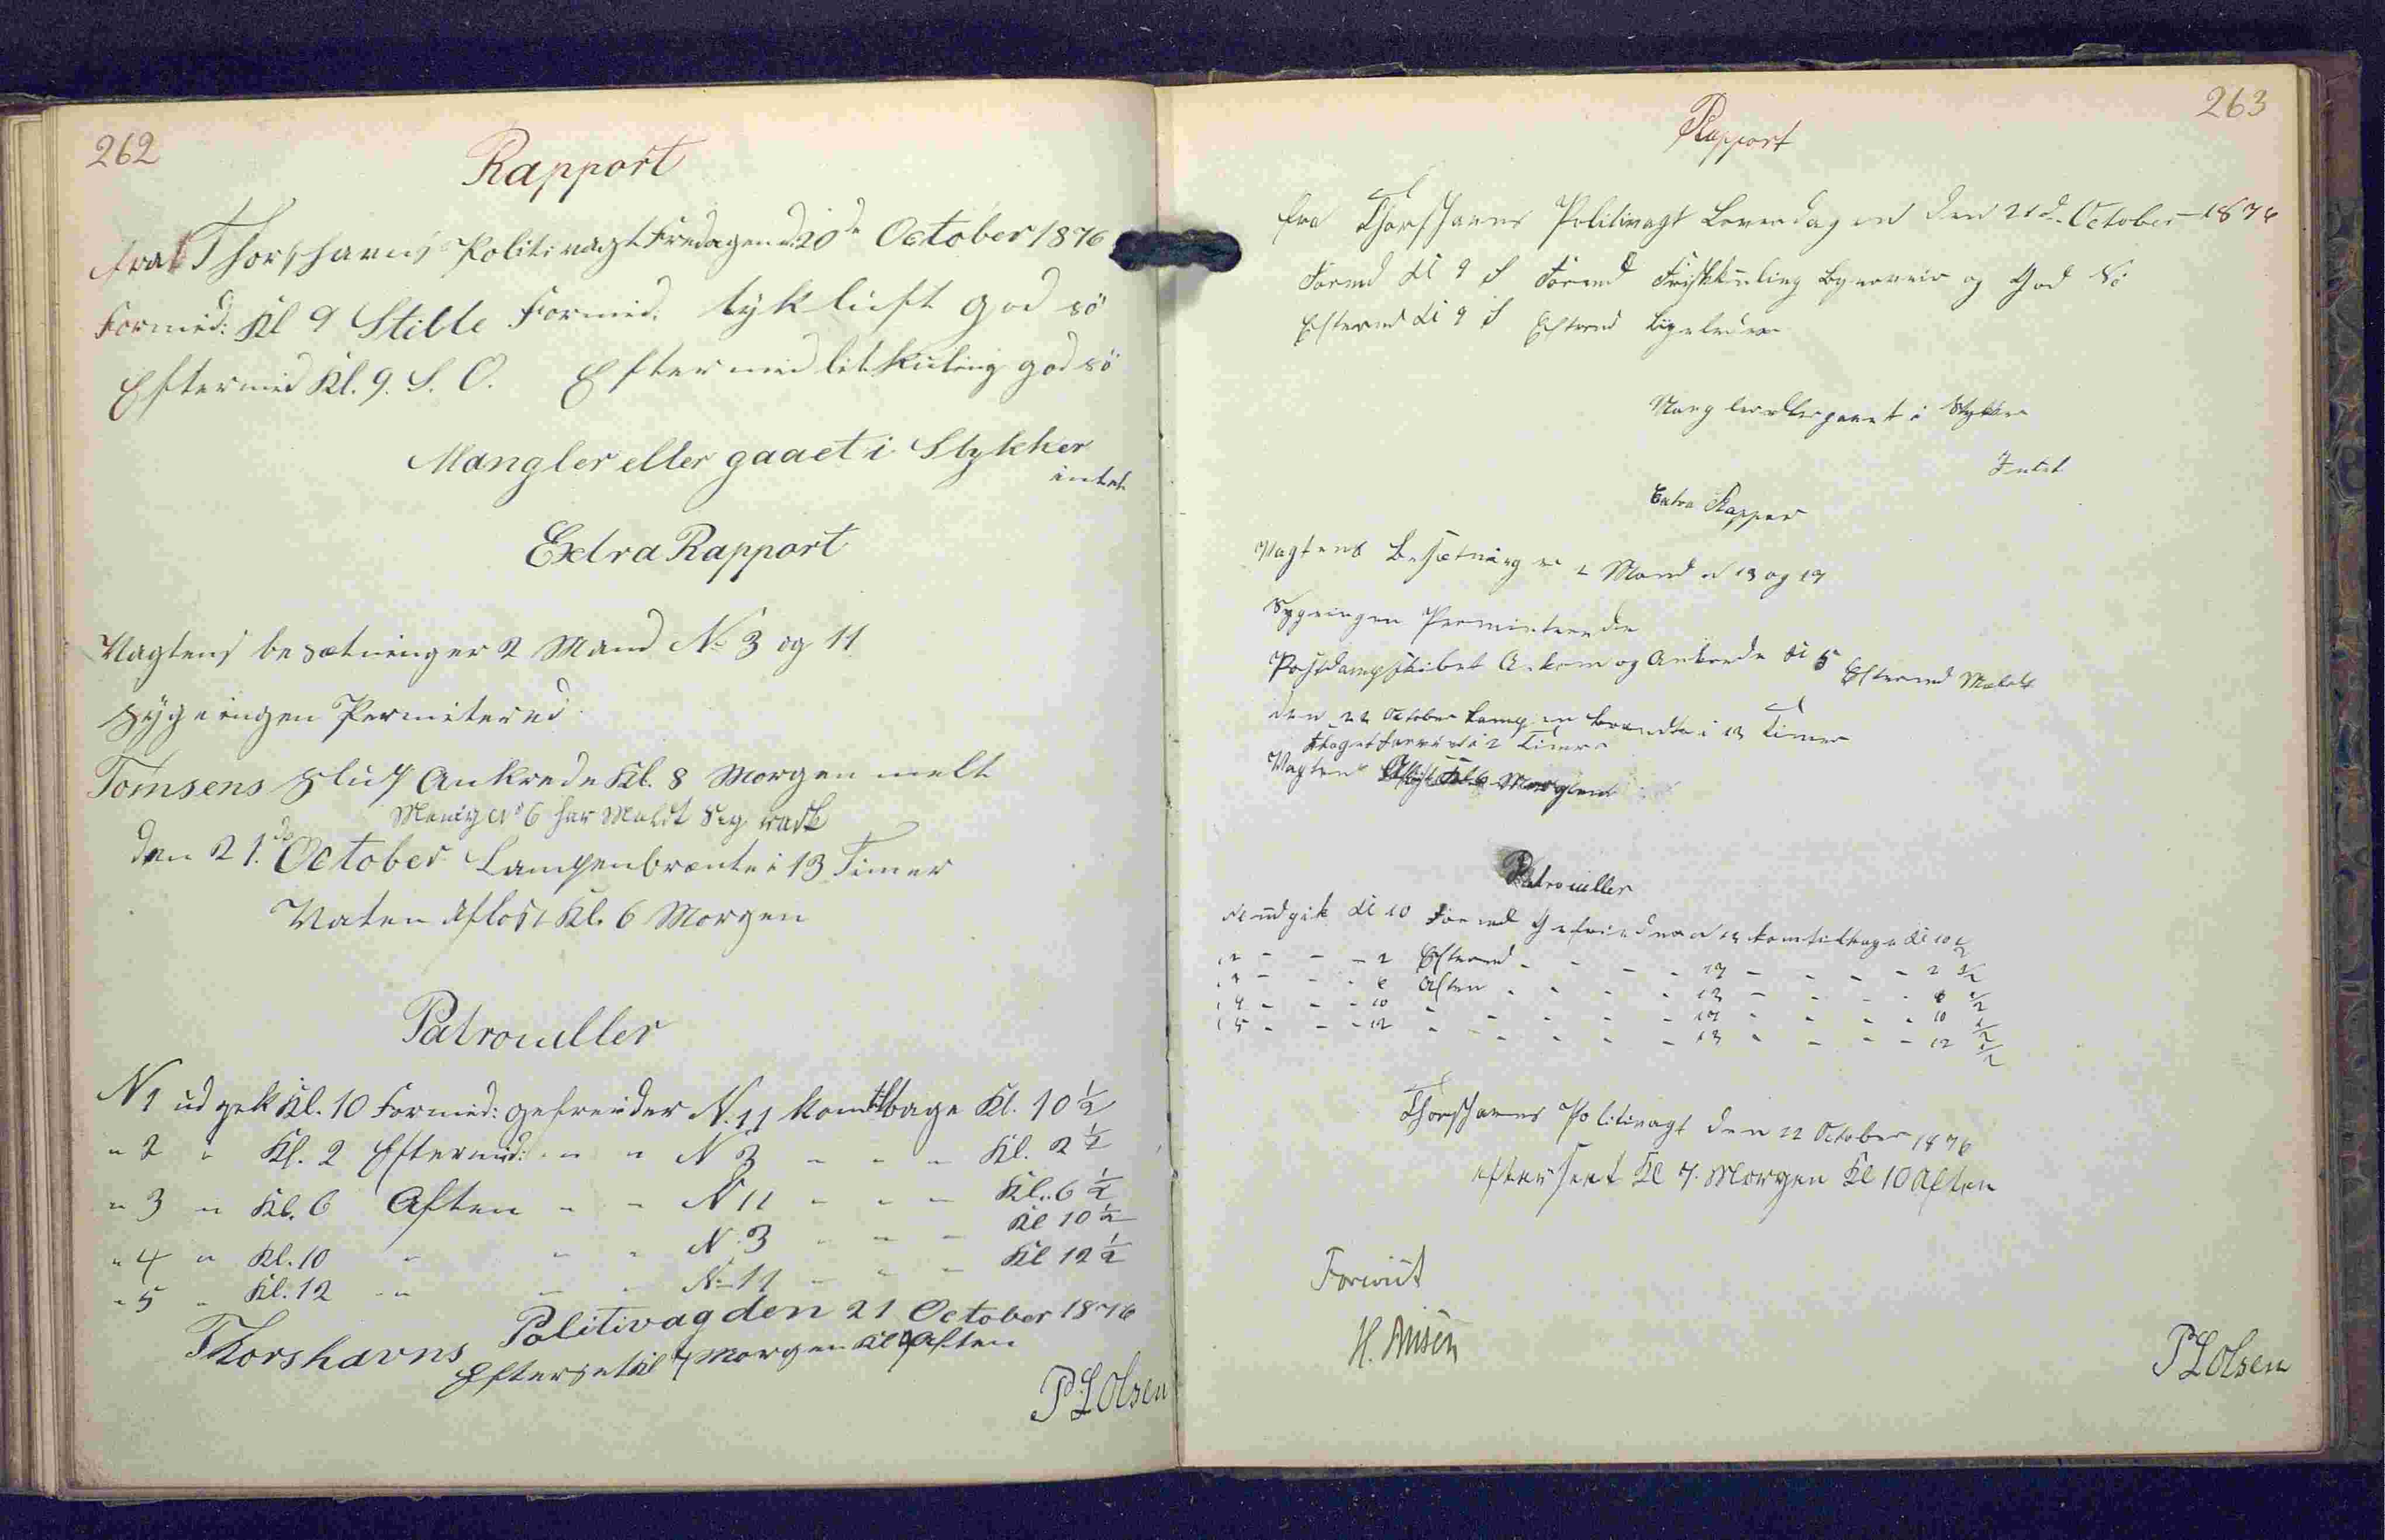 262
Rapport
fra Thorshavns Politivagt Fredagen d. 20de October 1876
Formid: Kl 9 Stille Formid. tyk luft god sö
Eftermid Kl. 9. S. O. Eftermid let Kuling god sö
Mangler eller gaaet i Stykker
intet
Extra Rapport
Vagtens besætninger 2 Mand No 3 og 11
Syge ingen Permitered
Tomsens Slup Ankrede Kl. 8 Morgen melt
Menig No 6 har Meldt Sig rask
den 21.de October Lampen brænte i 13 Timer
Vaten Afløst Kl. 6 Morgen
Patrouller
N 1 udgek Kl. 10 Formid: gefreider N. 11 kom tilbage Kl. 10 ½
" 2 " Kl. 2 Eftermid: " " N 3 " " " Kl. 2 ½
" 3 " Kl. 6 Aften " " N 11 " " " Kl. 6 ½
" 4 " Kl. 10 " " " N. 3 " " " Kl 10 ½
" 5 " Kl. 12 " " " " No 11 " " " Kl 12 ½
Thorshavns Politivag den 21 October 1876
Efterset Kl 7 Morgen Kl 9 Aften
P L Olsen
263
Rapport
fra Thorshavns Politivagt Löverdagen den 21d. October 1876
Formd Kl 9 S Formd Friskkuling Bygeveir og God Sö
Eftermd Kl 9 S Eftermd Ligeledes
Mangler eller gaaet i Stykker
Intet
Extra Rappor
Vagtens Besætning er 2 Mand No 13 og 17
Syge ingen Permiterede
Postdampskibet Ankom og Ankrede Kl 5 Eftermd Meldt
den 22 October Lampen brændte i 13 Timer
Vagten Afløst Kl. 6 Morgen
Patrouller
No 1 udgik Kl 10 Formd Gefreider No 13 kom tilbage Kl 10 ½
" 2 - - - 2 Eftermd - - - - 17 - - - - 2 ½
" 3 - - - 6 Aften - - - - 13 - - - - 6 ½
" 4 - - - 10 - - - - - 17 - - - - 10 ½
" 5 - - - 12 - - - - - 13 - - - - 12 ½
Thorshavns Politivagt den 22 October 1876
efterseet Kl 7. Morgen Kl 10 Aften
Forevist
P L Olsen